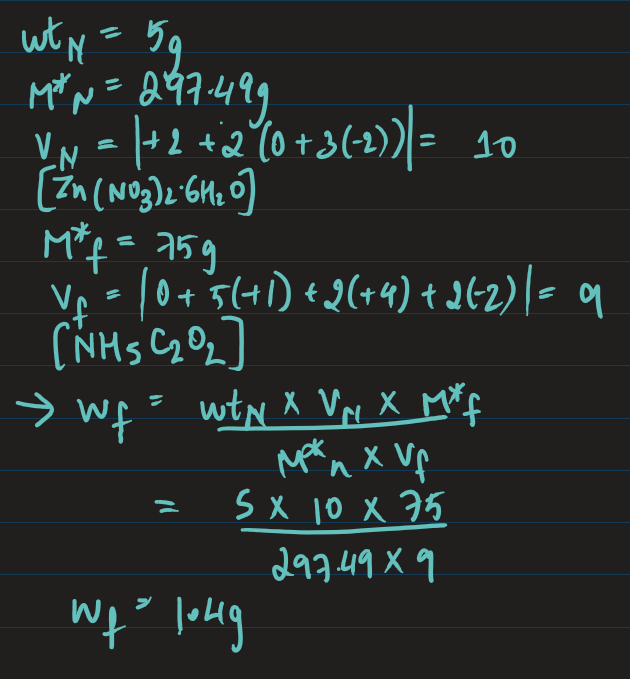 wt_N = 5g
M*_N = 297.49g
V_N = |+2 + 2(0 + 3(-2))| = 10
[Zn(NO3)2·6H2O]
M*_f = 75g
V_f = |0 + 5(+1) + 2(+4) + 2(-2)| = 9
[NH5C2O2]
→ W_f = wt_N × V_N × M*_f
M*_n × V_f
= 5 × 10 × 75
297.49 × 9
W_f = 1.4g